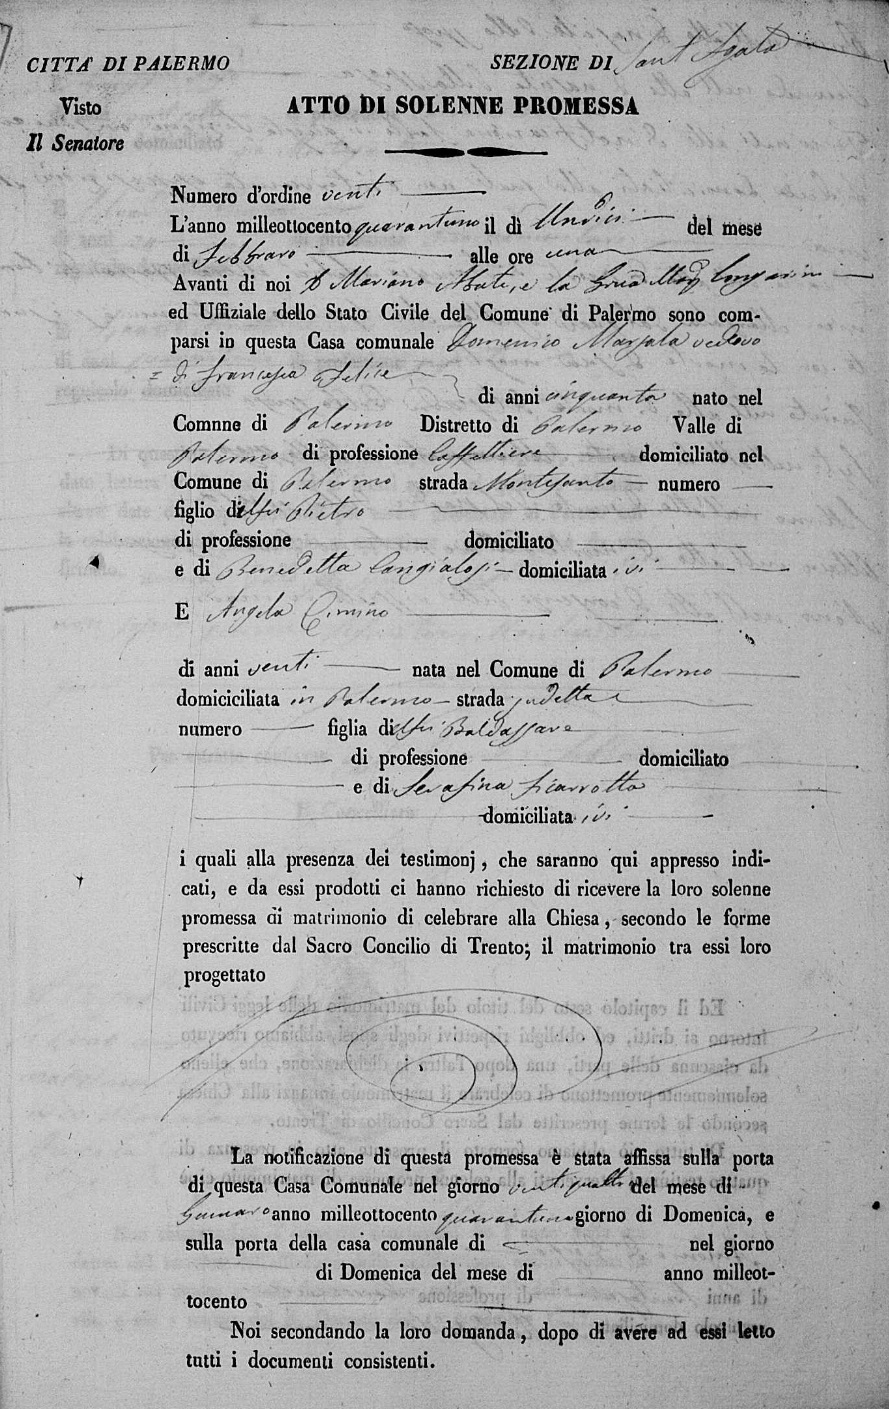 CITTA' DI PALERMO SEZIONE DI Sant Agata
Visto ATTO DI SOLENNE PROMESSA
Il Senatore
Numero d'ordine venti
L'anno milleottocento quarantuno il dì Undici del mese
di Febbraro alle ore una
Avanti di noi D Mariano Abate, e la
ed Uffiziale dello Stato Civile del Comune di Palermo sono com-
parsi in questa Casa comunale Domenico Marsala vedovo
= di Francesca Felice
di anni cinquanta nato nel
Comnne di Palermo Distretto di Palermo Valle di
Palermo di professione Caffettiere domiciliato nel
Comune di Palermo strada Montesanto numero
figlio di Pietro
di professione domiciliato
e di Benedetta Cangialosi domiciliata ivi
E Angela Cimino
di anni venti nata nel Comune di Palermo
domiciciliata in Palermo strada sudetta
numero figlia di Baldassare
di professione domiciliato
e di Serafina Sicarrotta
domiciliata ivi
i quali alla presenza dei testimonj, che saranno qui appresso indi-
cati, e da essi prodotti ci hanno richiesto di ricevere la loro solenne
promessa di matrimonio di celebrare alla Chiesa, secondo le forme
prescritte dal Sacro Concilio di Trento; il matrimonio tra essi loro
progettato
La notificazione di questa promessa è stata affissa sulla porta
di questa Casa Comunale nel giorno ventiquattro del mese di
Gennaro anno milleottocento quarantuno giorno di Domenica, e
sulla porta della casa comunale di nel giorno
di Domenica del mese di anno milleot-
tocento
Noi secondando la loro domanda, dopo di avere ad essi letto
tutti i documenti consistenti.